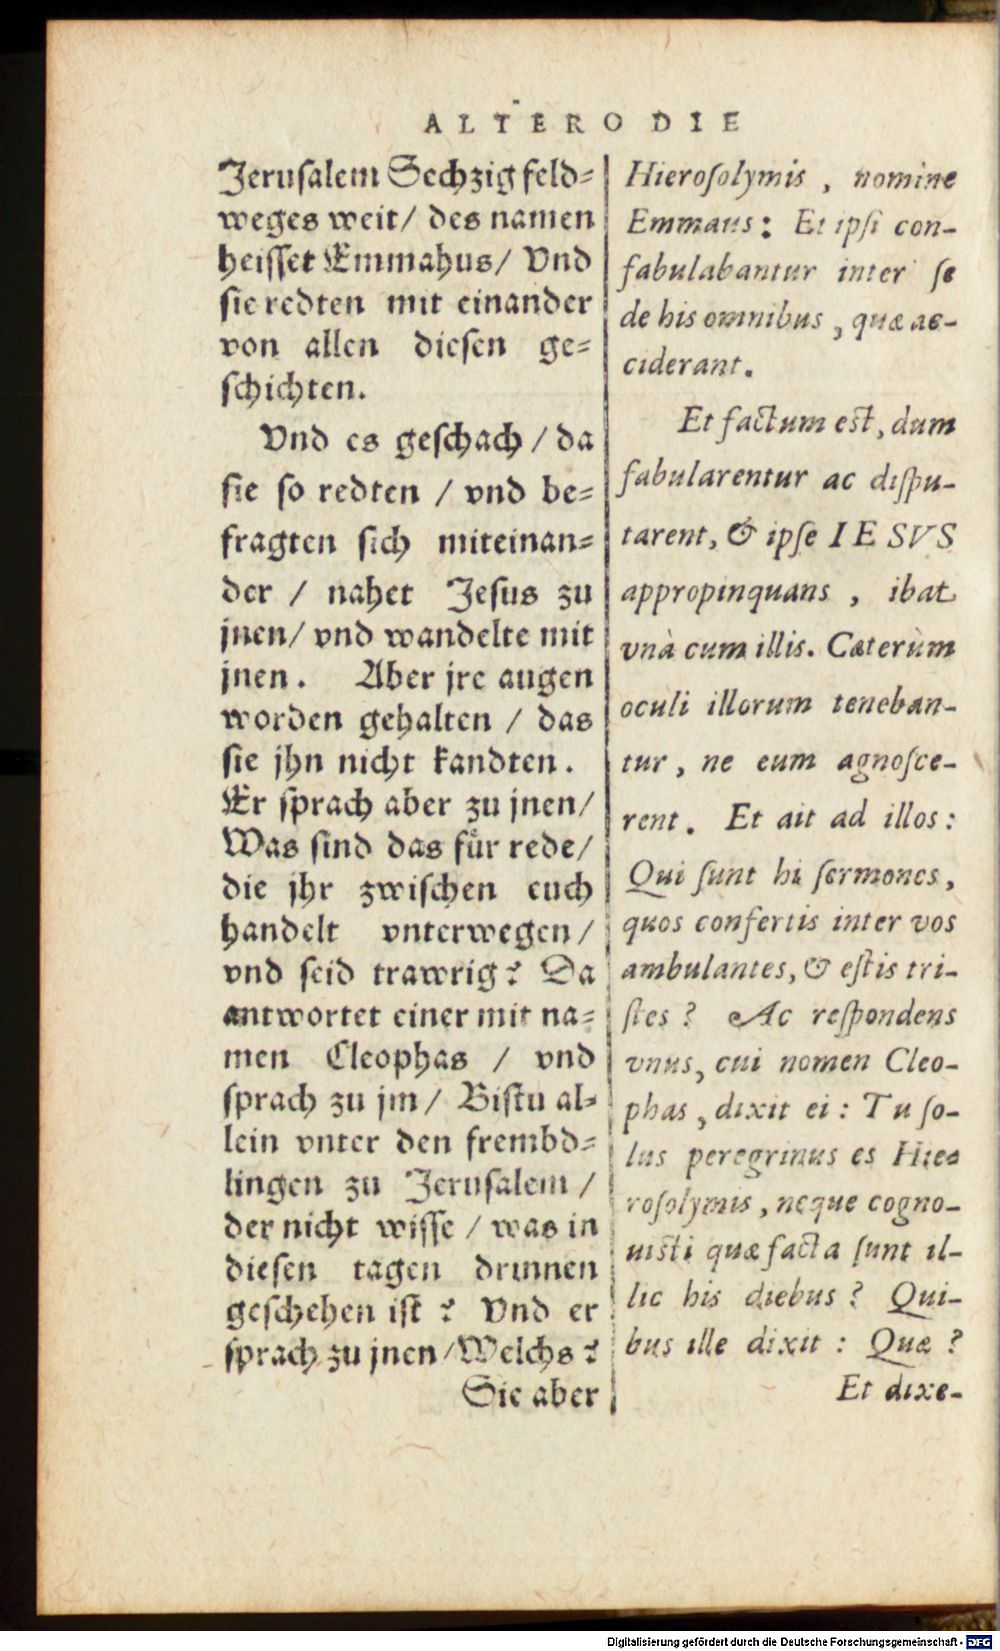 ALTERO DIE
Jeruſalem Sechzig feld⸗
weges weit/ des namen
heiſſet Emmahus/ Vnd
ſie redten mit einander
von allen dieſen ge⸗
ſchichten.
Vnd es geſchach / da
ſie ſo redten / vnd be⸗
fragten ſich miteinan⸗
der / nahet Jeſus zu
jnen/ vnd wandelte mit
jnen. Aber jre augen
worden gehalten / das
ſie jhn nicht kandten.
Er ſprach aber zu jnen/
Was ſind das fuͤr rede/
die jhr zwiſchen euch
handelt vnterwegen/
vnd ſeid trawrig? Da
antwortet einer mit na⸗
men Cleophas / vnd
ſprach zu jm/ Biſtu al⸗
lein vnter den frembd⸗
lingen zu Jeruſalem /
der nicht wiſſe / was in
dieſen tagen drinnen
geſchehen iſt? Vnd er
ſprach zu jnen/Welchs?
Sie aber
Hieroſolymis, nomine
Emmaus: Et ipſi con-
fabulabantur inter ſe
de his omnibus, quæ ac-
ciderant.
Et factum eſt, dum
fabularentur ac diſpu-
tarent, & ipſe IESVS
appropinquans, ibat
vnà cum illis. Cæterùm
oculi illorum teneban-
tur, ne eum agnoſce-
rent. Et ait ad illos:
Qui ſunt hi ſermones,
quos confertis inter vos
ambulantes, & eſtis tri-
ſtes? Ac reſpondens
vnus, cui nomen Cleo-
phas, dixit ei: Tu ſo-
lus peregrinus es Hie-
roſolymis, neque cogno-
uiſti quæ facta ſunt il-
lic his diebus? Qui-
bus ille dixit: Quæ?
Et dixe-
Digitalisierung gefördert durch die Deutsche Forschungsgemeinschaft - DFG